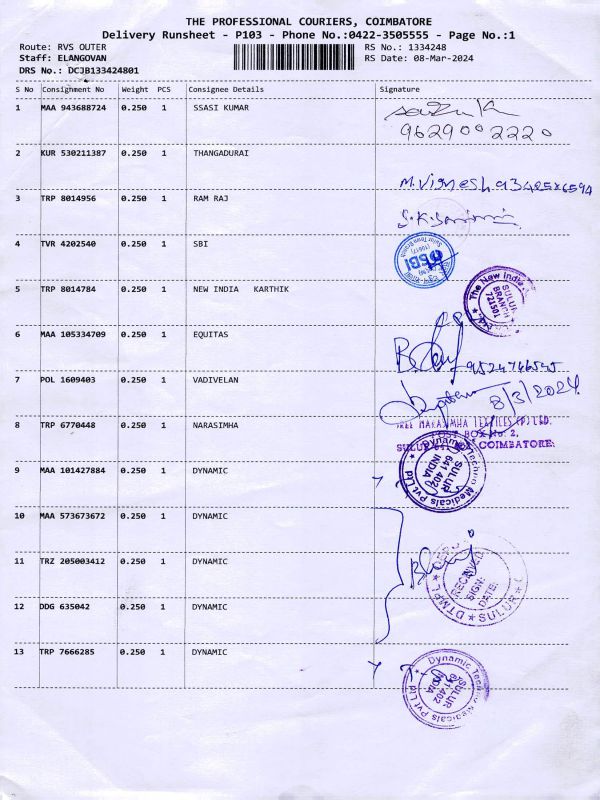 THE PROFESSIONAL COURIERS, COIMBATORE
Delivery Runsheet - P103 - Phone No.:0422-3505555 - Page No.:1
Route: RVS OUTER
RS No.: 1334248
Staff: ELANGOVAN
RS Date: 08-Mar-2024
DRS No.: DCJB133424801
S No Consignment No Weight PCS Consignee Details Signature
1 MAA 943688724 0.250 1 SSASI KUMAR
9629002220
2 KUR 530211387 0.250 1 THANGADURAI
M. Vignesh 9342586594
3 TRP 8014956 0.250 1 RAM RAJ
4 TVR 4202540 0.250 1 SBI
SBI
5 TRP 8014784 0.250 1 NEW INDIA KARTHIK
The New India
SULUR
BRANCH
721501
6 MAA 105334709 0.250 1 EQUITAS
9524746545
7 POL 1609403 0.250 1 VADIVELAN
8/3/2024
8 TRP 6770448 0.250 1 NARASIMHA
SREE NARASIMHA TEXTILES (P) LTD.
POST BOX No. 2,
SULUR COIMBATORE.
9 MAA 101427884 0.250 1 DYNAMIC
Dynamic Techno Medicals Pvt Ltd
SULUR
641 402
INDIA
10 MAA 573673672 0.250 1 DYNAMIC
11 TRZ 205003412 0.250 1 DYNAMIC
RECEIVED
SIGN:
DATE:
DTMPL ★ SULUR
12 DDG 635042 0.250 1 DYNAMIC
13 TRP 7666285 0.250 1 DYNAMIC
Dynamic Techno Medicals Pvt Ltd
SULUR
641 402
INDIA